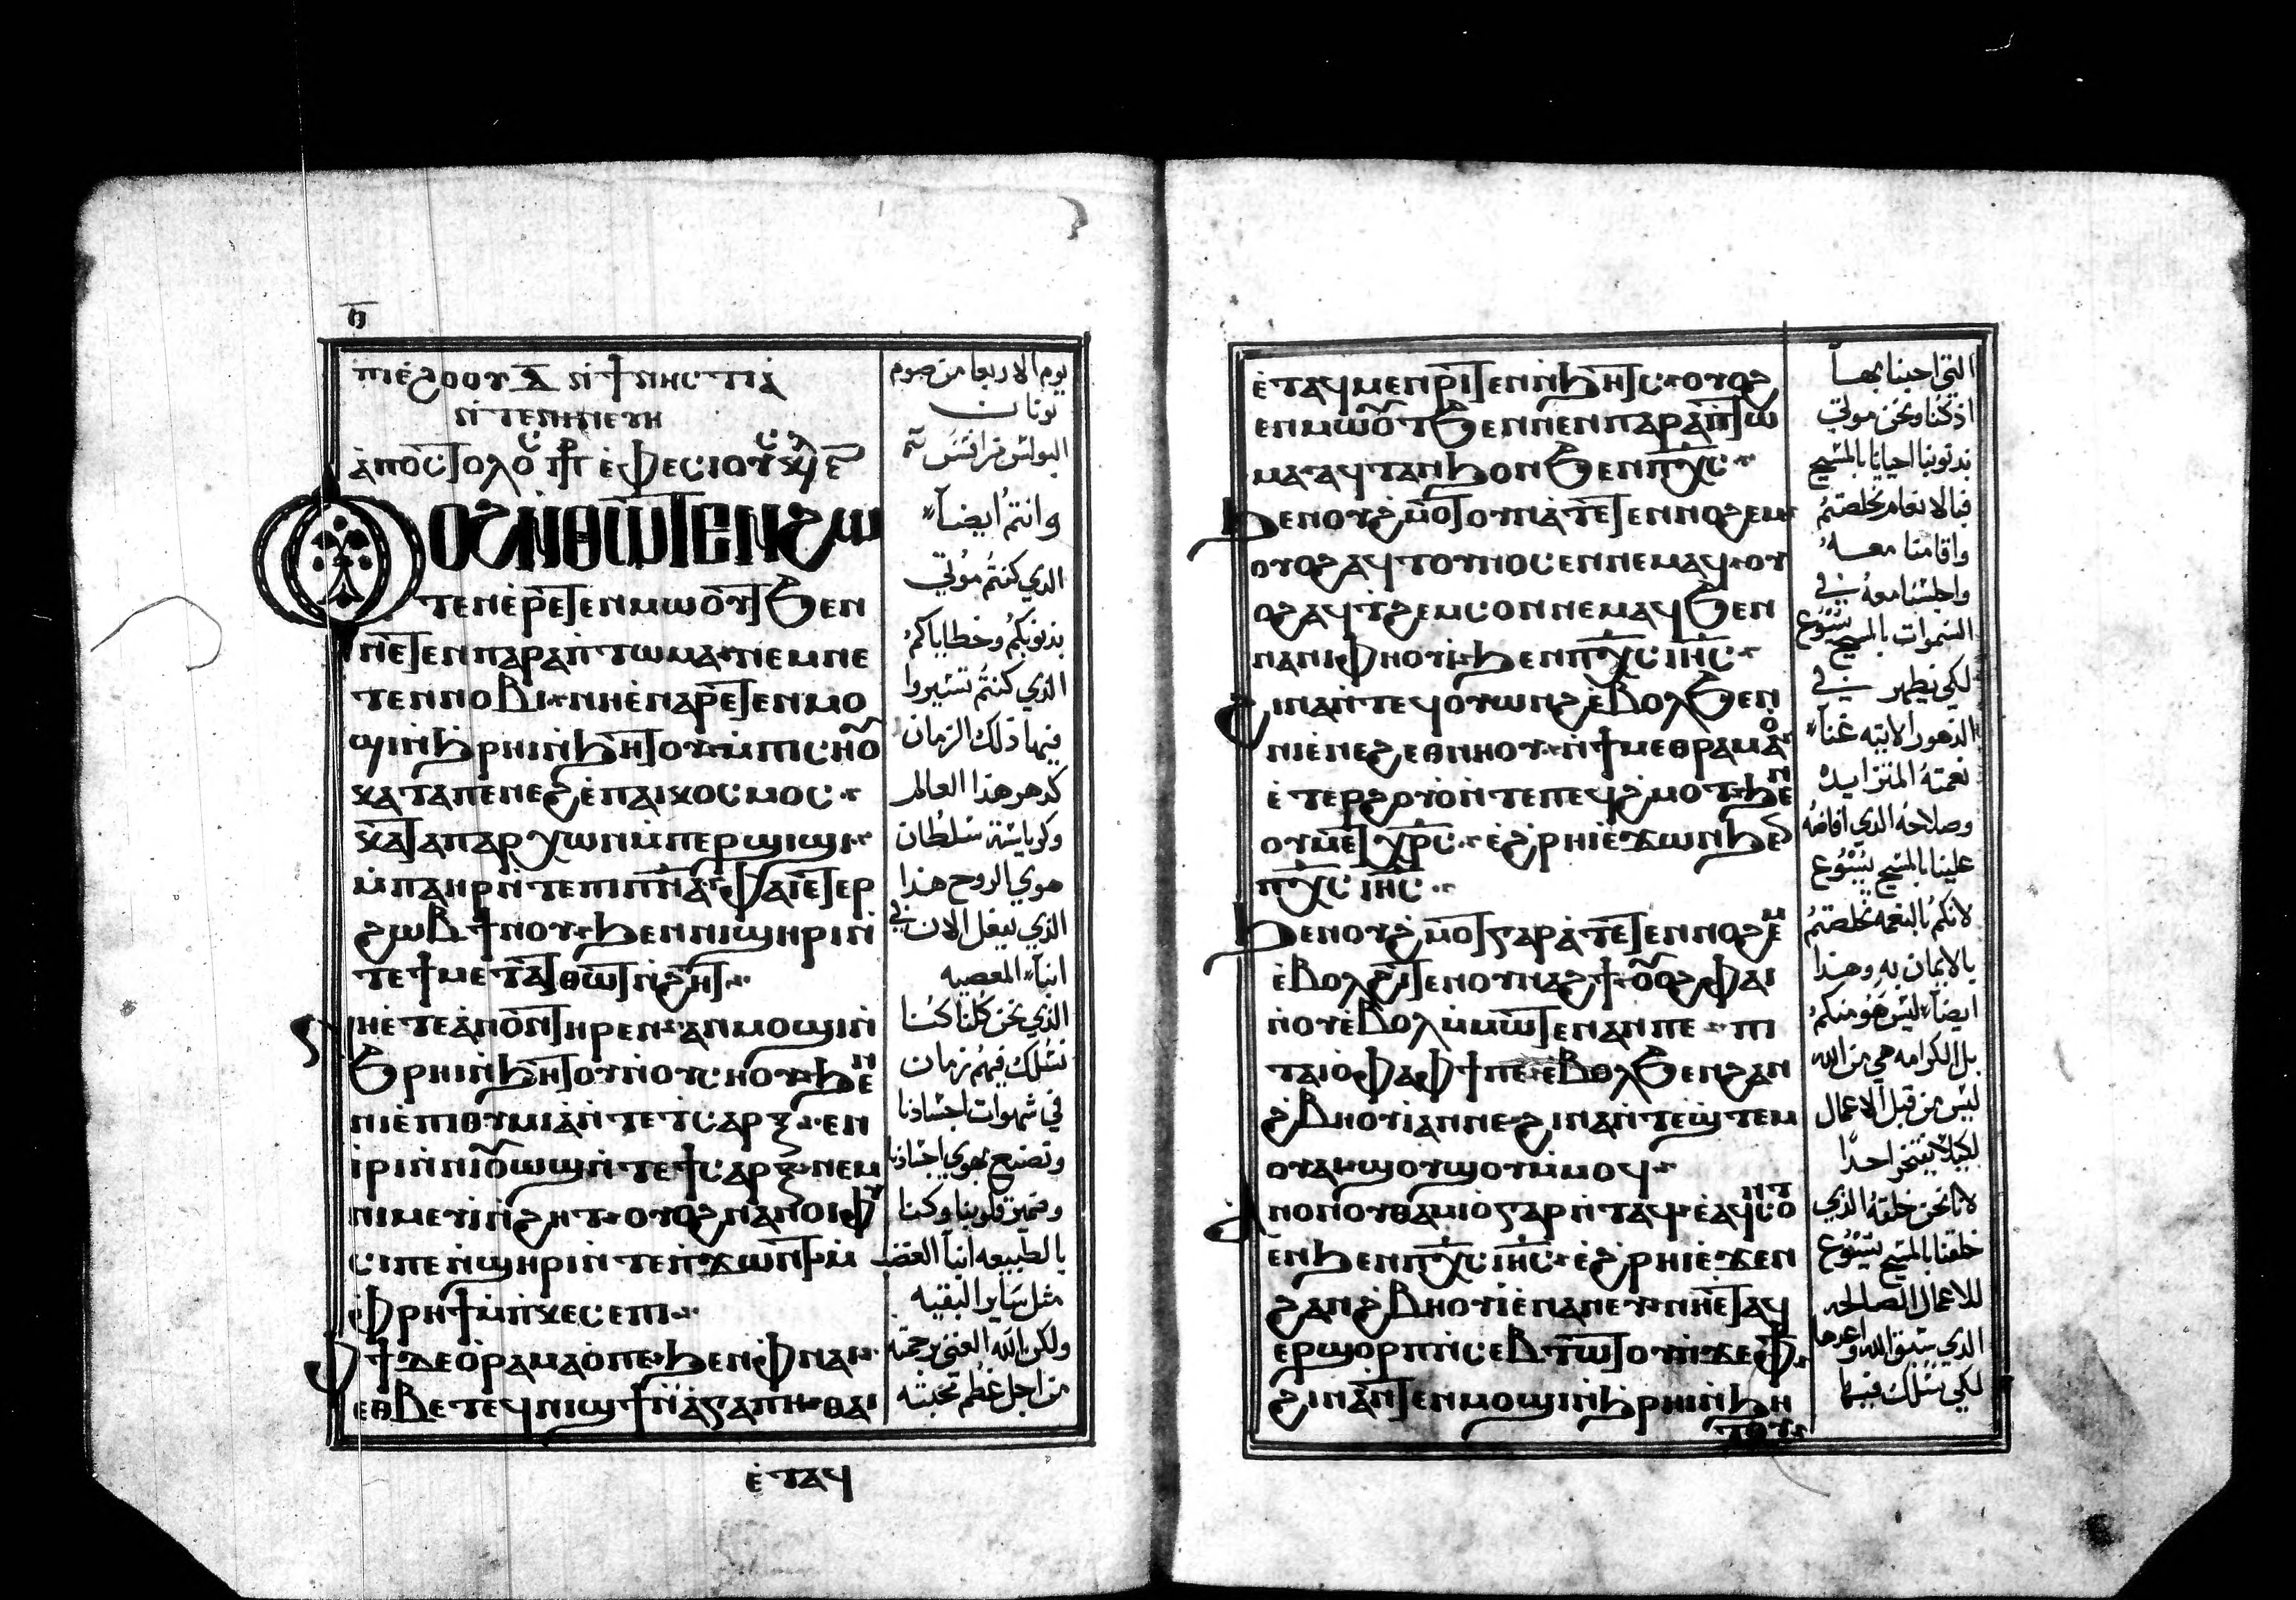 ⲏ̅
ⲡⲓⲉ̀ϩⲟⲟⲩ ⲇ̅ ⲛ̀ϯⲛⲏⲥⲧⲓⲁ̀
ⲛ̀ⲧⲉⲛⲓⲛⲉⲩⲏ
ⲟⲩⲟϩ ⲛ̀ⲑⲱⲧⲉⲛ ϩⲱ
ⲧⲉⲛ ⲉ̀ⲣⲉⲧⲉⲛⲙⲱⲟⲩⲧ ϧⲉⲛ
ⲛⲉⲧⲉⲛⲡⲁⲣⲁⲡⲧⲱⲙⲁ ⲛⲉⲙ ⲛⲉ
ⲧⲉⲛⲛⲟⲃⲓ ⲛⲏ ⲉ̀ⲛⲁⲣⲉⲧⲉⲛⲙⲟ
ϣⲓ ⲛ̀ϧⲣⲏⲓ ⲛ̀ϧⲏⲧⲟⲩ ⲙ̀ⲡⲓⲥⲏⲟⲩ
ⲕⲁⲧⲁ ⲡⲉⲛⲉϩ ⲉ̀ⲡⲁⲓⲕⲟⲥⲙⲟⲥ
ⲕⲁⲧⲁ ⲡⲁⲣⲭⲱⲛ ⲙ̀ⲡⲉⲣϣⲓϣⲓ
ⲙ̀ⲡⲁⲏⲣ ⲛ̀ⲧⲉ ⲡⲓⲡⲛ̅ⲁ̅ ⲫⲁⲓ ⲉⲧⲉⲣ
ϩⲱⲃ ϯⲛⲟⲩ ϧⲉⲛ ⲛⲓϣⲏⲣⲓ ⲛ̀
ⲧⲉ ϯⲙⲉⲧⲁⲧⲑⲱⲧ ⲛ̀ϩⲏⲧ
ⲛⲏ ⲉ̀ⲧⲉ ⲁ̀ⲛⲟⲛ ⲧⲏⲣⲉⲛ ⲁⲛⲙⲟϣⲓ ⲛ̀
ϧⲣⲏⲓ ⲛ̀ϧⲏⲧⲟⲩ ⲛ̀ⲟⲩⲥⲏⲟⲩ ϧⲉⲛ
ⲛⲓⲉ̀ⲡⲓⲑⲩⲙⲓⲁ̀ ⲛ̀ⲧⲉ ⲧⲥⲁⲣⲝ ⲉⲛ
ⲓ̀ⲣⲓ ⲛ̀ⲛⲓⲟⲩⲱϣ ⲛ̀ⲧⲉ ϯⲥⲁⲣⲝ ⲛⲉⲙ
ⲛⲓⲙⲉⲩⲓ ⲛ̀ϩⲏⲧ ⲟⲩⲟϩ ⲛⲁⲛⲟⲓ ⲫⲩ
ⲥⲓ ⲡⲉ ⲛ̀ϣⲏⲣⲓ ⲛ̀ⲧⲉ ⲡϫⲱⲛⲧ ⲙ̀
ⲫⲣⲏϯ ⲙ̀ⲡⲕⲉⲥⲉⲡⲓ
ⲫϯ ⲇⲉ ⲟⲩⲣⲁⲙⲁⲟ̀ ⲡⲉ ϧⲉⲛ ⲫⲛⲁⲓ
ⲉⲑⲃⲉ ⲧⲉϥⲛⲓϣϯ ⲛ̀ⲁ̀ⲅⲁⲡⲏ ⲑⲁⲓ
ⲉ̀ⲧⲁϥ
يوم الاربعا من صوم
نونان
وانتم ايضاً
الذي كنتم موتي
بذنوبكم وخطاياكم
الذي كنتم تسيروا
فيها ذلك الزمان
كدهر هذا العالم
وكرياسة سلطان
هوي الروح هذا
الذي يفعل الان في
ابناء المعصيه
الذي نحن كلنا كنا
نسلك فيهم زمان
في شهوات اجسادنا
ونصنع هوي اجسادنا
وضمير قلوبنا وكنا
بالطبيعه ابناء الغضب
مثل ساير البقيه
ولكن الله الغني برحمته
من اجل عظم محبته
ⲉ̀ⲧⲁϥⲙⲉⲛⲣⲓⲧⲉⲛ ⲛ̀ϧⲏⲧⲥ ⲟⲩⲟϩ
ⲉⲛⲙⲱⲟⲩⲧ ϧⲉⲛ ⲛⲉⲛⲡⲁⲣⲁⲡⲧⲱ
ⲙⲁ ⲁϥⲧⲁⲛϧⲟⲛ ϧⲉⲛ ⲡⲭ̅ⲥ̅
ϧⲉⲛ ⲟⲩϩⲙⲟⲧ ⲟⲩⲛ ⲁ̀ⲧⲉⲧⲉⲛⲛⲟϩⲉⲙ
ⲟⲩⲟϩ ⲁϥⲧⲟⲩⲛⲟⲥⲉⲛ ⲛⲉⲙⲁϥ ⲟⲩ
ⲟϩ ⲁϥⲧϩⲉⲙⲥⲟⲛ ⲛⲉⲙⲁϥ ϧⲉⲛ
ⲛⲁⲛⲓⲫⲏⲟⲩⲓ̀ ϧⲉⲛ ⲡⲭ̅ⲥ̅ ⲓⲏ̅ⲥ̅
ϩⲓⲛⲁ ⲛ̀ⲧⲉϥⲟⲩⲱⲛϩ ⲉ̀ⲃⲟⲗ ϧⲉⲛ
ⲛⲓⲉ̀ⲛⲉϩ ⲉⲑⲛⲏⲟⲩ ⲛ̀ϯⲙⲉⲑⲣⲁⲙⲁⲟ̀
ⲉ̀ⲧⲉⲣϩⲟⲩⲟ̀ ⲛ̀ⲧⲉ ⲡⲉϥϩⲙⲟⲧ ϧⲉⲛ
ⲟⲩⲙⲉⲧⲭⲣ̅ⲥ̅ ⲉ̀ϩⲣⲏⲓ ⲉ̀ϫⲱⲛ ϧⲉⲛ
ⲡⲭ̅ⲥ̅ ⲓⲏ̅ⲥ̅
ϧⲉⲛ ⲟⲩϩⲙⲟⲧ ⲅⲁⲣ ⲁ̀ⲧⲉⲧⲉⲛⲛⲟϩⲉⲙ
ⲉ̀ⲃⲟⲗ ϩⲓⲧⲉⲛ ⲟⲩⲛⲁϩϯ ⲟⲩⲟϩ ⲫⲁⲓ
ⲛ̀ⲟⲩⲉ̀ⲃⲟⲗ ⲙ̀ⲙⲱⲧⲉⲛ ⲁⲛ ⲡⲉ ⲡⲓ
ⲧⲁⲓⲟ̀ ⲫⲁ ⲫϯ ⲡⲉ ⲉ̀ⲃⲟⲗ ϧⲉⲛ ϩⲁⲛ
ϩⲃⲏⲟⲩⲓ̀ ⲁⲛ ⲛⲉ ϩⲓⲛⲁ ⲛ̀ⲧⲉϣⲧⲉⲙ
ⲟⲩⲁⲓ ϣⲟⲩϣⲟⲩ ⲙ̀ⲙⲟϥ
ⲁⲛⲟⲛ ⲟⲩⲑⲁⲙⲓⲟ̀ ⲅⲁⲣ ⲛ̀ⲧⲁϥ ⲉ̀ⲁϥⲥⲟⲛⲧ
ⲉⲛ ϧⲉⲛ ⲡⲭ̅ⲥ̅ ⲓⲏ̅ⲥ̅ ⲉ̀ϩⲣⲏⲓ ⲉ̀ϫⲉⲛ
ϩⲁⲛϩⲃⲏⲟⲩⲓ̀ ⲉ̀ⲛⲁⲛⲉⲩ ⲛⲏ ⲉ̀ⲧⲁϥ
ⲉⲣϣⲟⲣⲡ ⲛ̀ⲥⲉⲃⲧⲱⲧⲟⲩ ⲛ̀ϫⲉ ⲫϯ
ϩⲓⲛⲁ ⲛ̀ⲧⲉⲛⲙⲟϣⲓ ⲛ̀ϧⲣⲏⲓ ⲛ̀ϧⲏ
ⲧⲟⲩ
التي احبنا بها
اذ كنا ونحن موتي
بذنوبنا احيانا بالمسيح
فبالانعام تخلصتم
واقامنا معه
واجلسنا معه في
السموات بالمسيح يسوع
لكي يظهر في
الدهور الاتيه غناء
نعمته المتزايده
وصلاحه الذي افاضه
علينا بالمسيح يسوع
لانكم بالنعمه تخلصتم
بالايمان به وهذا
ايضاً ليس هو منكم
بل الكرامه هي من الله
ليس من قبل الاعمال
لكيلا يفتخر احداً
لانا نحن خلقة الذي
خلقنا بالمسيح يسوع
للاعمال الصالحه
الذي سبق الله واعدها
لكي نسلك فيها